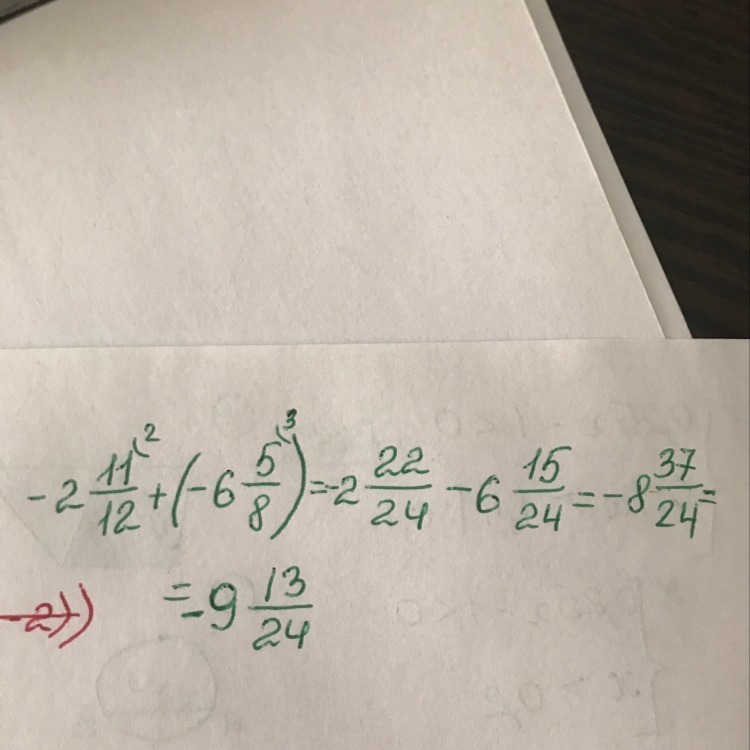 -2 11/12 ⁽² + (-6 5/8 ⁽³) = -2 22/24 - 6 15/24 = -8 37/24 =
= -9 13/24
-2))